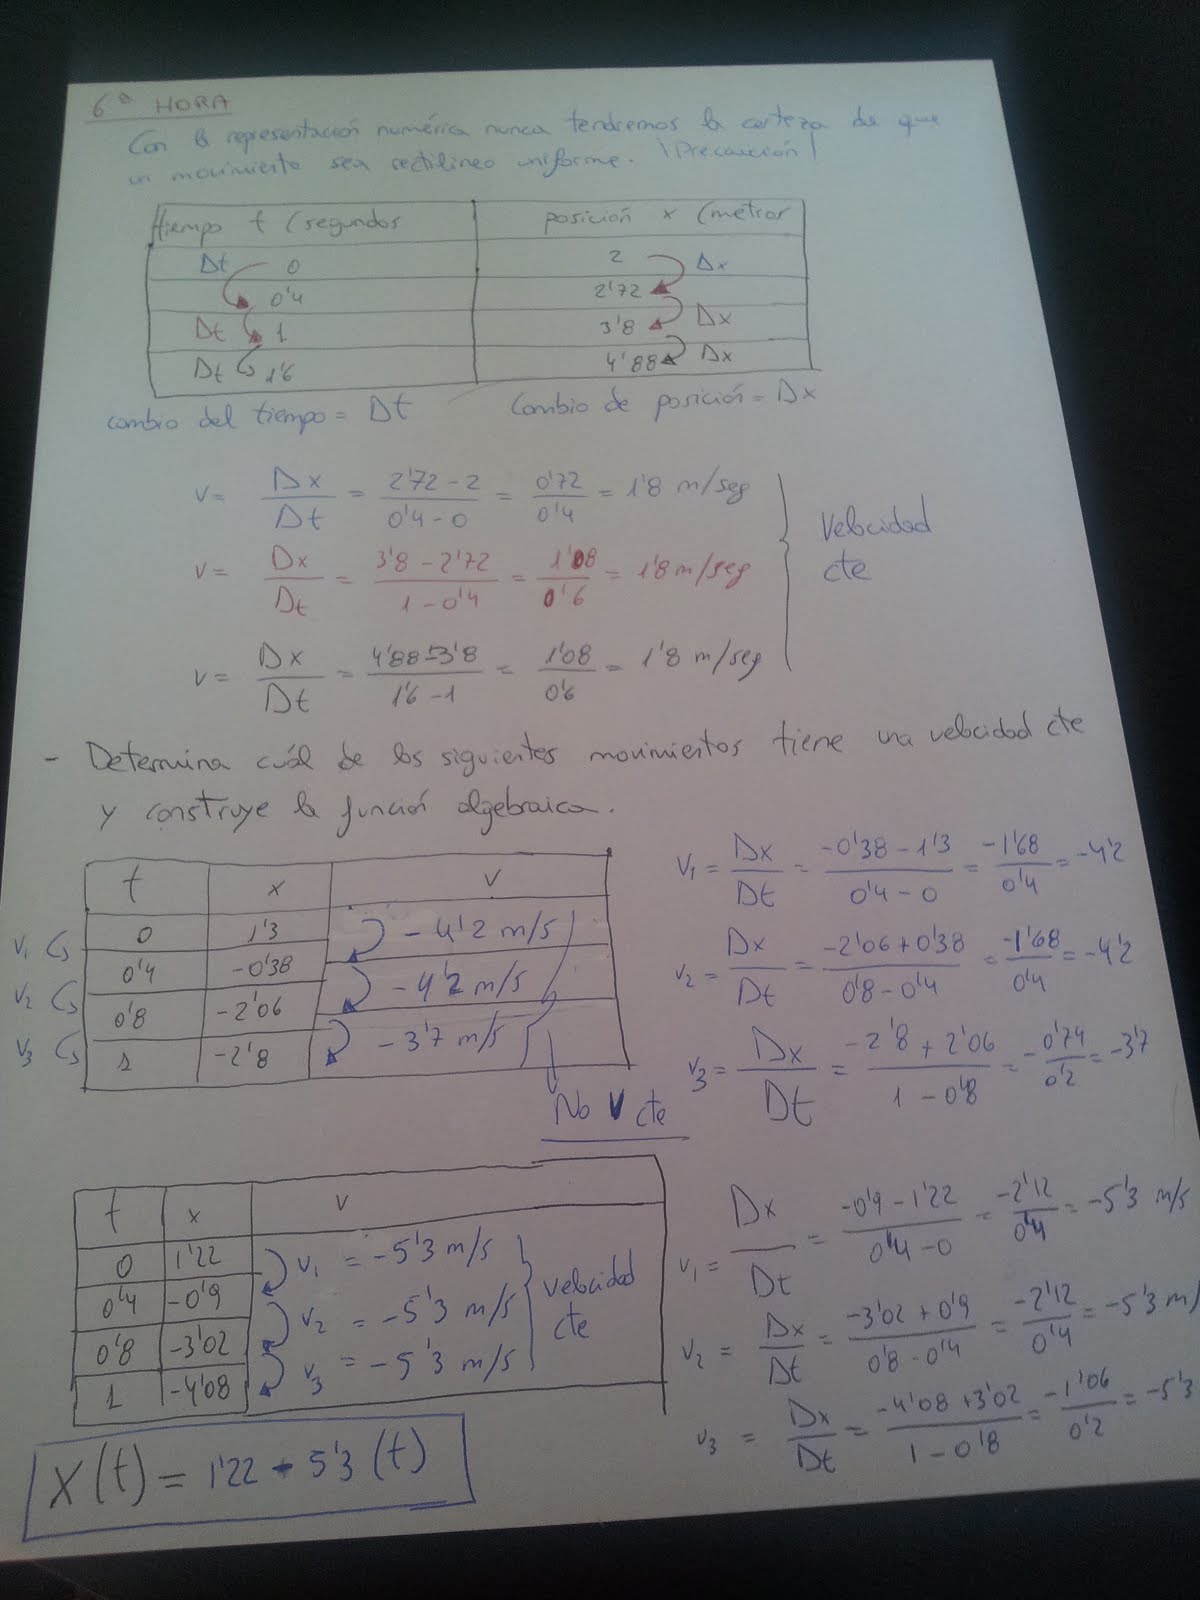 6ª HORA
Con la representación numérica nunca tendremos la certeza de que
un movimiento sea rectilineo uniforme. ¡Precaución!
tiempo t (segundos posición x (metros
Dt 0 2 Dx
0'4 2'72
Dt 1 3'8 Dx
Dt 1'6 4'88 Dx
cambio del tiempo = Dt Cambio de posición = Dx
v = Dx/Dt = 2'72 - 2/0'4 - 0 = 0'72/0'4 = 1'8 m/seg
v = Dx/Dt = 3'8 - 2'72/1 - 0'4 = 1'08/0'6 = 1'8 m/seg
v = Dx/Dt = 4'88 - 3'8/1'6 - 1 = 1'08/0'6 = 1'8 m/seg
Velocidad
cte
- Determina cuál de los siguientes movimientos tiene una velocidad cte
y construye la función algebraica.
t x v
0 1'3
v1 - 4'2 m/s
0'4 -0'38
v2 - 4'2 m/s
0'8 -2'06
v3 - 3'7 m/s
1 -2'8
No V cte
v1 = Dx/Dt = -0'38 - 1'3/0'4 - 0 = -1'68/0'4 = -4'2
v2 = Dx/Dt = -2'06 + 0'38/0'8 - 0'4 = -1'68/0'4 = -4'2
v3 = Dx/Dt = -2'8 + 2'06/1 - 0'8 = -0'74/0'2 = -3'7
t x v
0 1'22 v1 = -5'3 m/s
0'4 -0'9 v2 = -5'3 m/s
0'8 -3'02 v3 = -5'3 m/s
1 -4'08
velocidad
cte
v1 = Dx/Dt = -0'9 - 1'22/0'4 - 0 = -2'12/0'4 = -5'3 m/s
v2 = Dx/Dt = -3'02 + 0'9/0'8 - 0'4 = -2'12/0'4 = -5'3 m/
v3 = Dx/Dt = -4'08 + 3'02/1 - 0'8 = -1'06/0'2 = -5'3
X(t) = 1'22 - 5'3 (t)